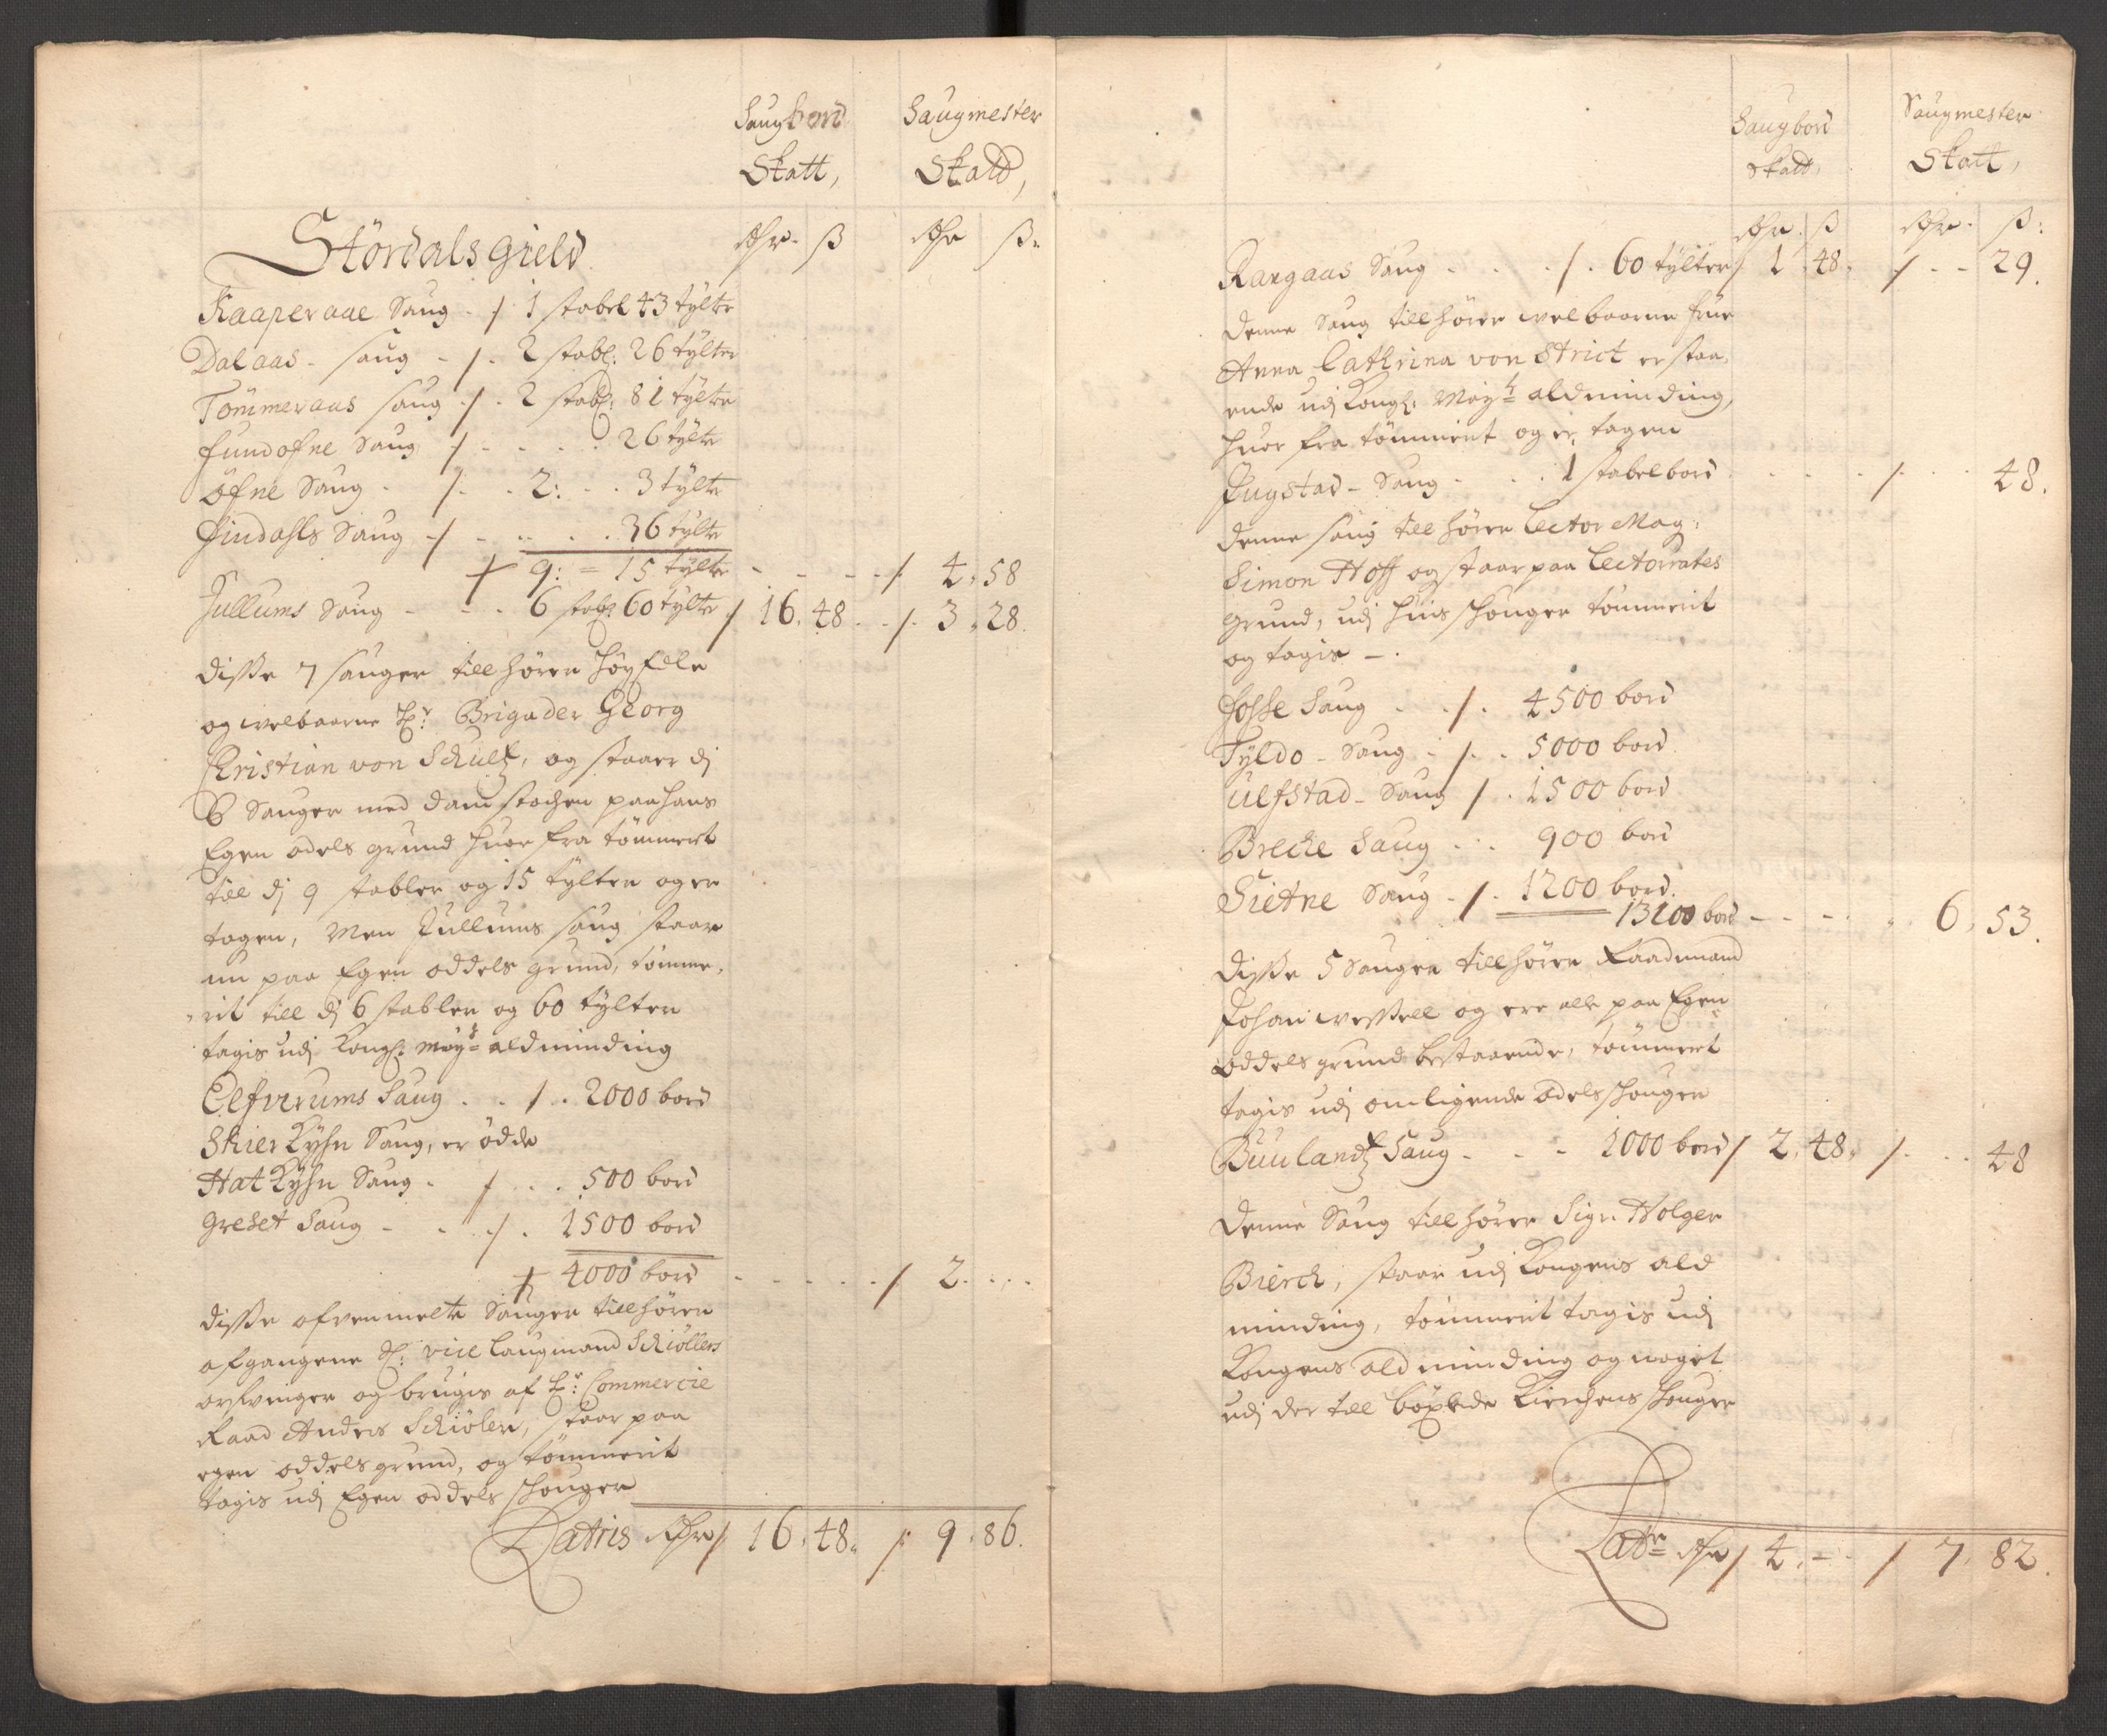 Saugbord Saugmester
Skatt, Skatt,
Stördals gield
Rdr. ß Rdr ß:
Kaaperaae Saug ⁒ 1 stabel 43 tylter
Dalaas - saug - ⁒ 2 stabl: 26 tylter
Tömmeraas saug ⁒ 2 stabl: 81 tylter
fundofne Saug ⁒ . . . 26 tylter
Öfne Saug . ⁒ . 2: . . 3 tylter
Findahls Saug ⁒ . . . . 36 tylter
9: = 15 tylter - - - ⁒ 4, 58
Jullums Saug - - . 6 stabl: 60 tylter / 16. 48 . ⁒ 3, 28.
disse 7 sauger till hörer höyEdle
og welbaarne Hr: Brigader Georg
Christian von Schultz, og staaer dj
6 Sauger med damstochen paa hans
Egen odels grund huor fra tömmert
till dj 9 stabler og 15 tylter og er
tagen, Men Jullums saug staar
nu paa Egen oddels grund, tömme-
rit till dj 6 stabler og 60 tylter
tagis udj Kongl: Mayts aldminding
Elfverums Saug . . ⁒ . 2000 bord
Skier Kyhn Saug, er öde
Hat Kyhn Saug . ⁒ . . 500 bord
Greset Saug - - ⁒ . 1500 bord
4000 bord - - - - - ⁒ 2. . . .
disse ofvenmelte Sauger till hörer
afgangene Sl: vice Laugmand Schiöllers
arfvinger og brugis af Hr: Commercie
Raad Anders Schiöler, staar paa
egen oddels grund, og tömmerit
tagis udj Egen oddels skouger
Latris Rdr / 16. 48. ⁒ 9. 86.
Saugbord Saugmester
Skatt, Skatt,
Rdr. ß Rdr. ß:
Rangaas Saug - . . ⁒ . 60 tylter / 1 . 48. ⁒ - - 29.
denne Saug till hörer welbaarne frue
Anna Cathrina von Strict er staa
ende udj Kongl: Mayts aldminding,
huor fra tömmerit og er tagen
Jugstad - Saug - . . 1 stabel bord . . . ⁒ . . 48.
denne saug till hörer Lector Mag:
Simon Hoff og staar paa Lectorates
grund, udj huis skouger tömmerit
og tagis -.
Fosse Saug . . ⁒ . 4500 bord
Tyldo - Saug - ⁒ . . 5000 bord
Ulfstad - Saug ⁒ . 1500 bord
Breche Saug . . . 900 bord
Sietne Saug - ⁒ . 1200 bord
13100 bord - - - - . 6. 53.
disse 5 Sauger till hörer Raadmand
Johan Wessell og ere alle paa Egen
Oddels grund bestaaende, tömmert
tagis udj omligende Odels skouger
Buulandtz Saug - - - 1000 bord / 2. 48, ⁒ . . . 48
denne Saug till hörer Sigr. Holger
Bierch, staar udj Kongens ald
minding, tömmerit tagis udj
Kongens aldminding og noget
udj der till böxlede Kirchens skouger
Latr Rdr / 4. - . ⁒ 7. 82.